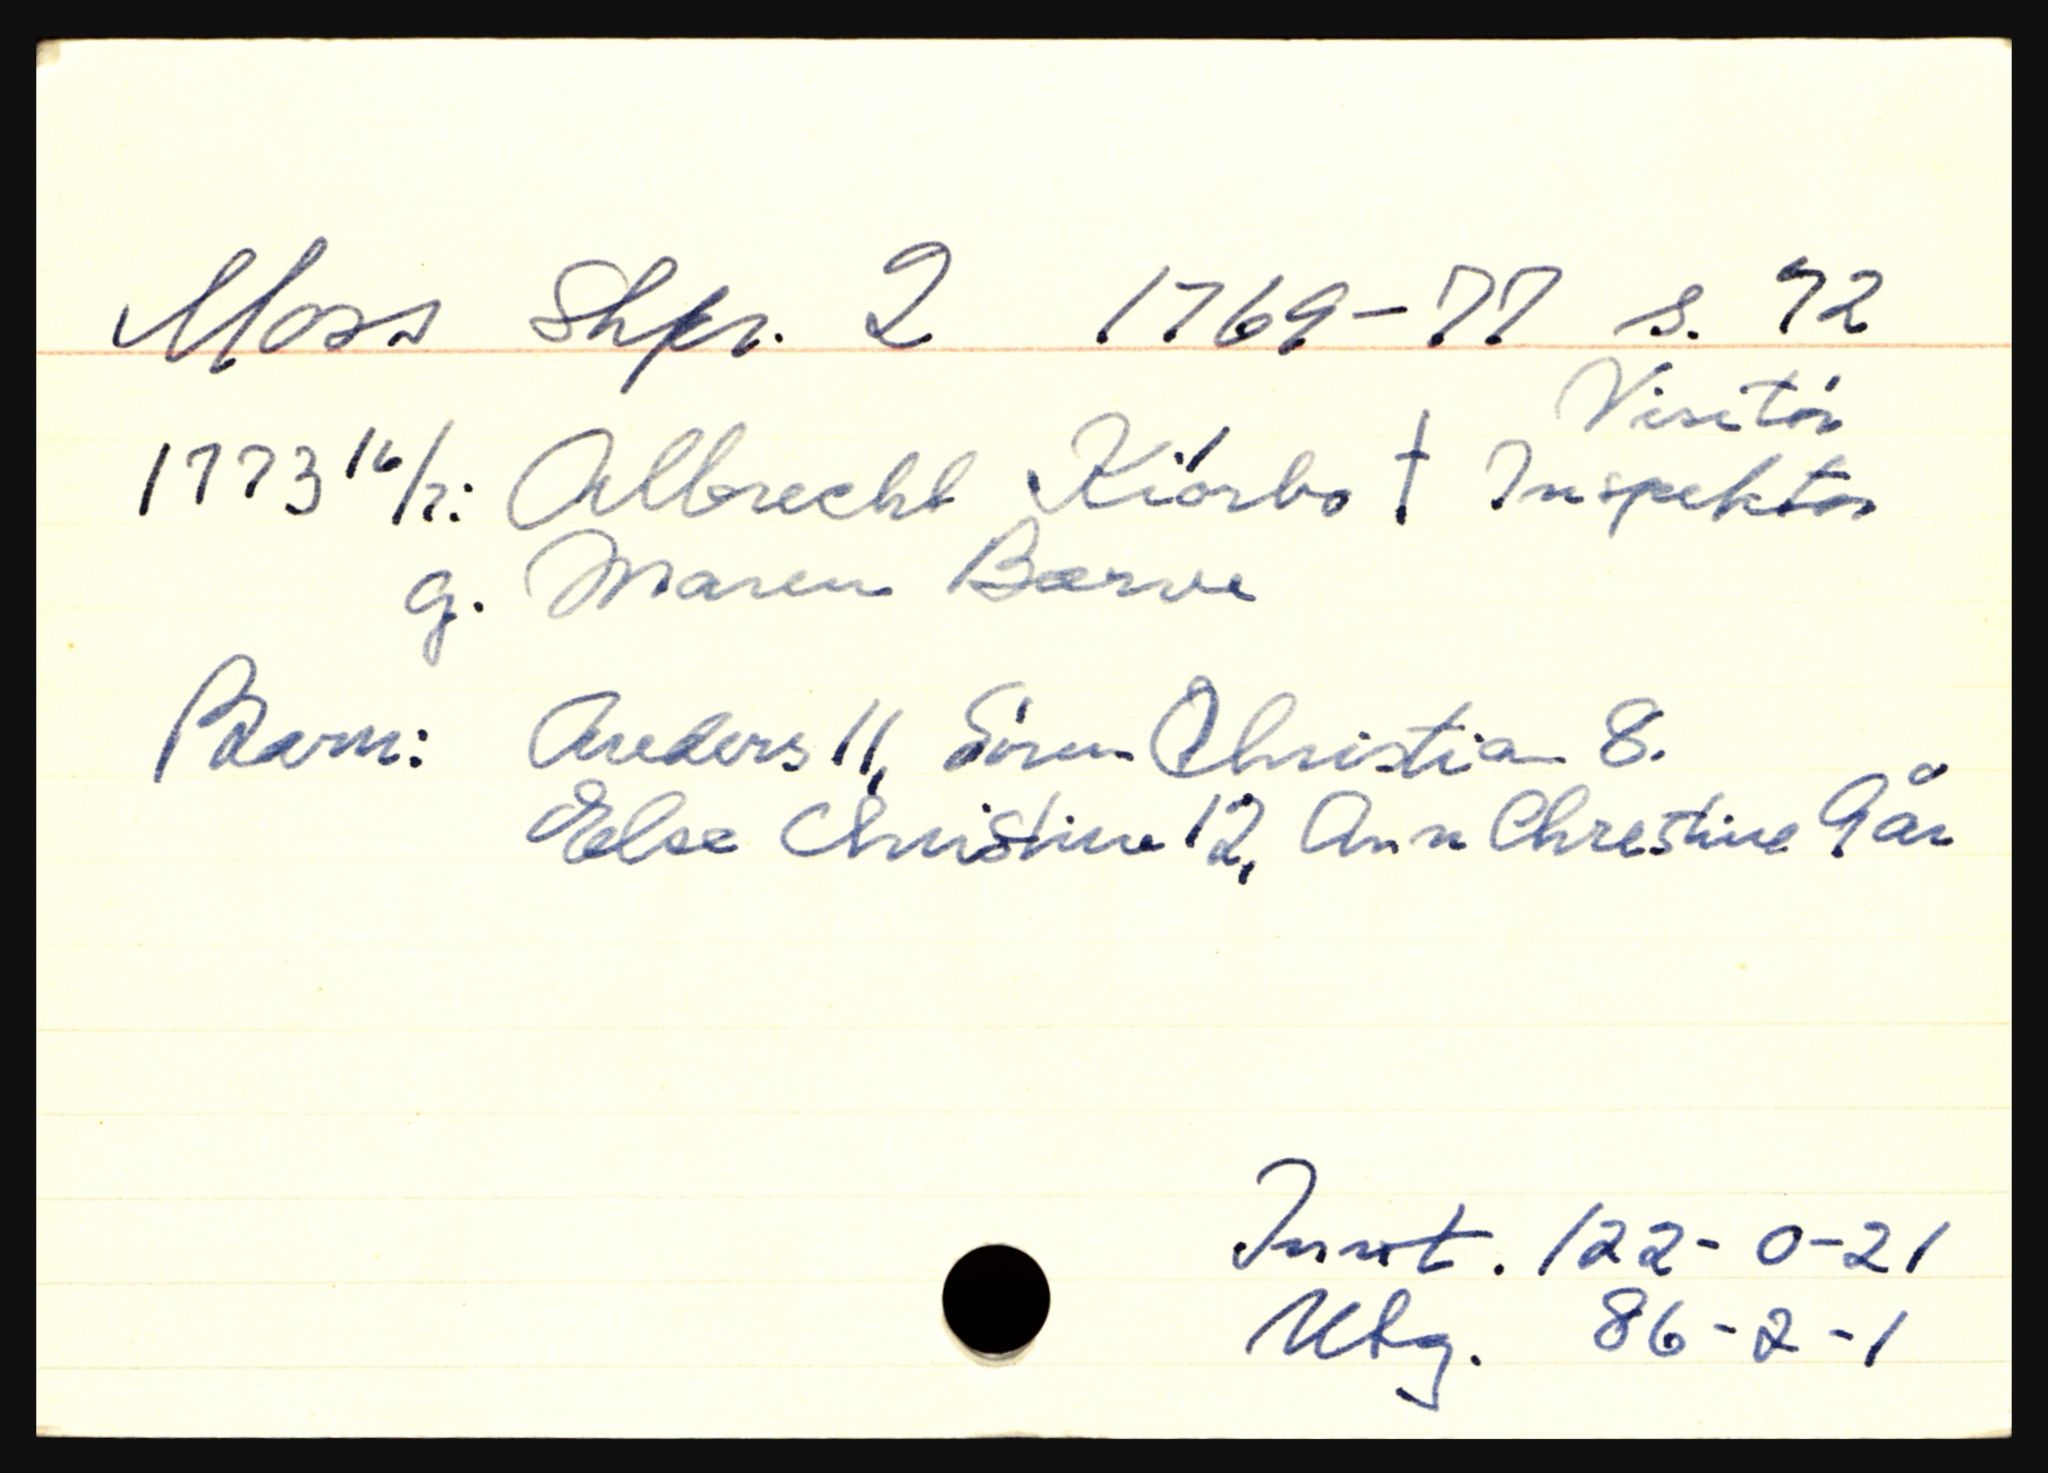 Moss Skpr. 2 1769-77 s. 72
Visitör
1773 16/7: Albrecht Kiörbo † Inspektör
g. Maren Bærve
Barn: Anders 11, Sören Christian 8.
Else Christine 12, Ann Chrestine 9 år
Innt. 122-0-21
Utg. 86-2-1